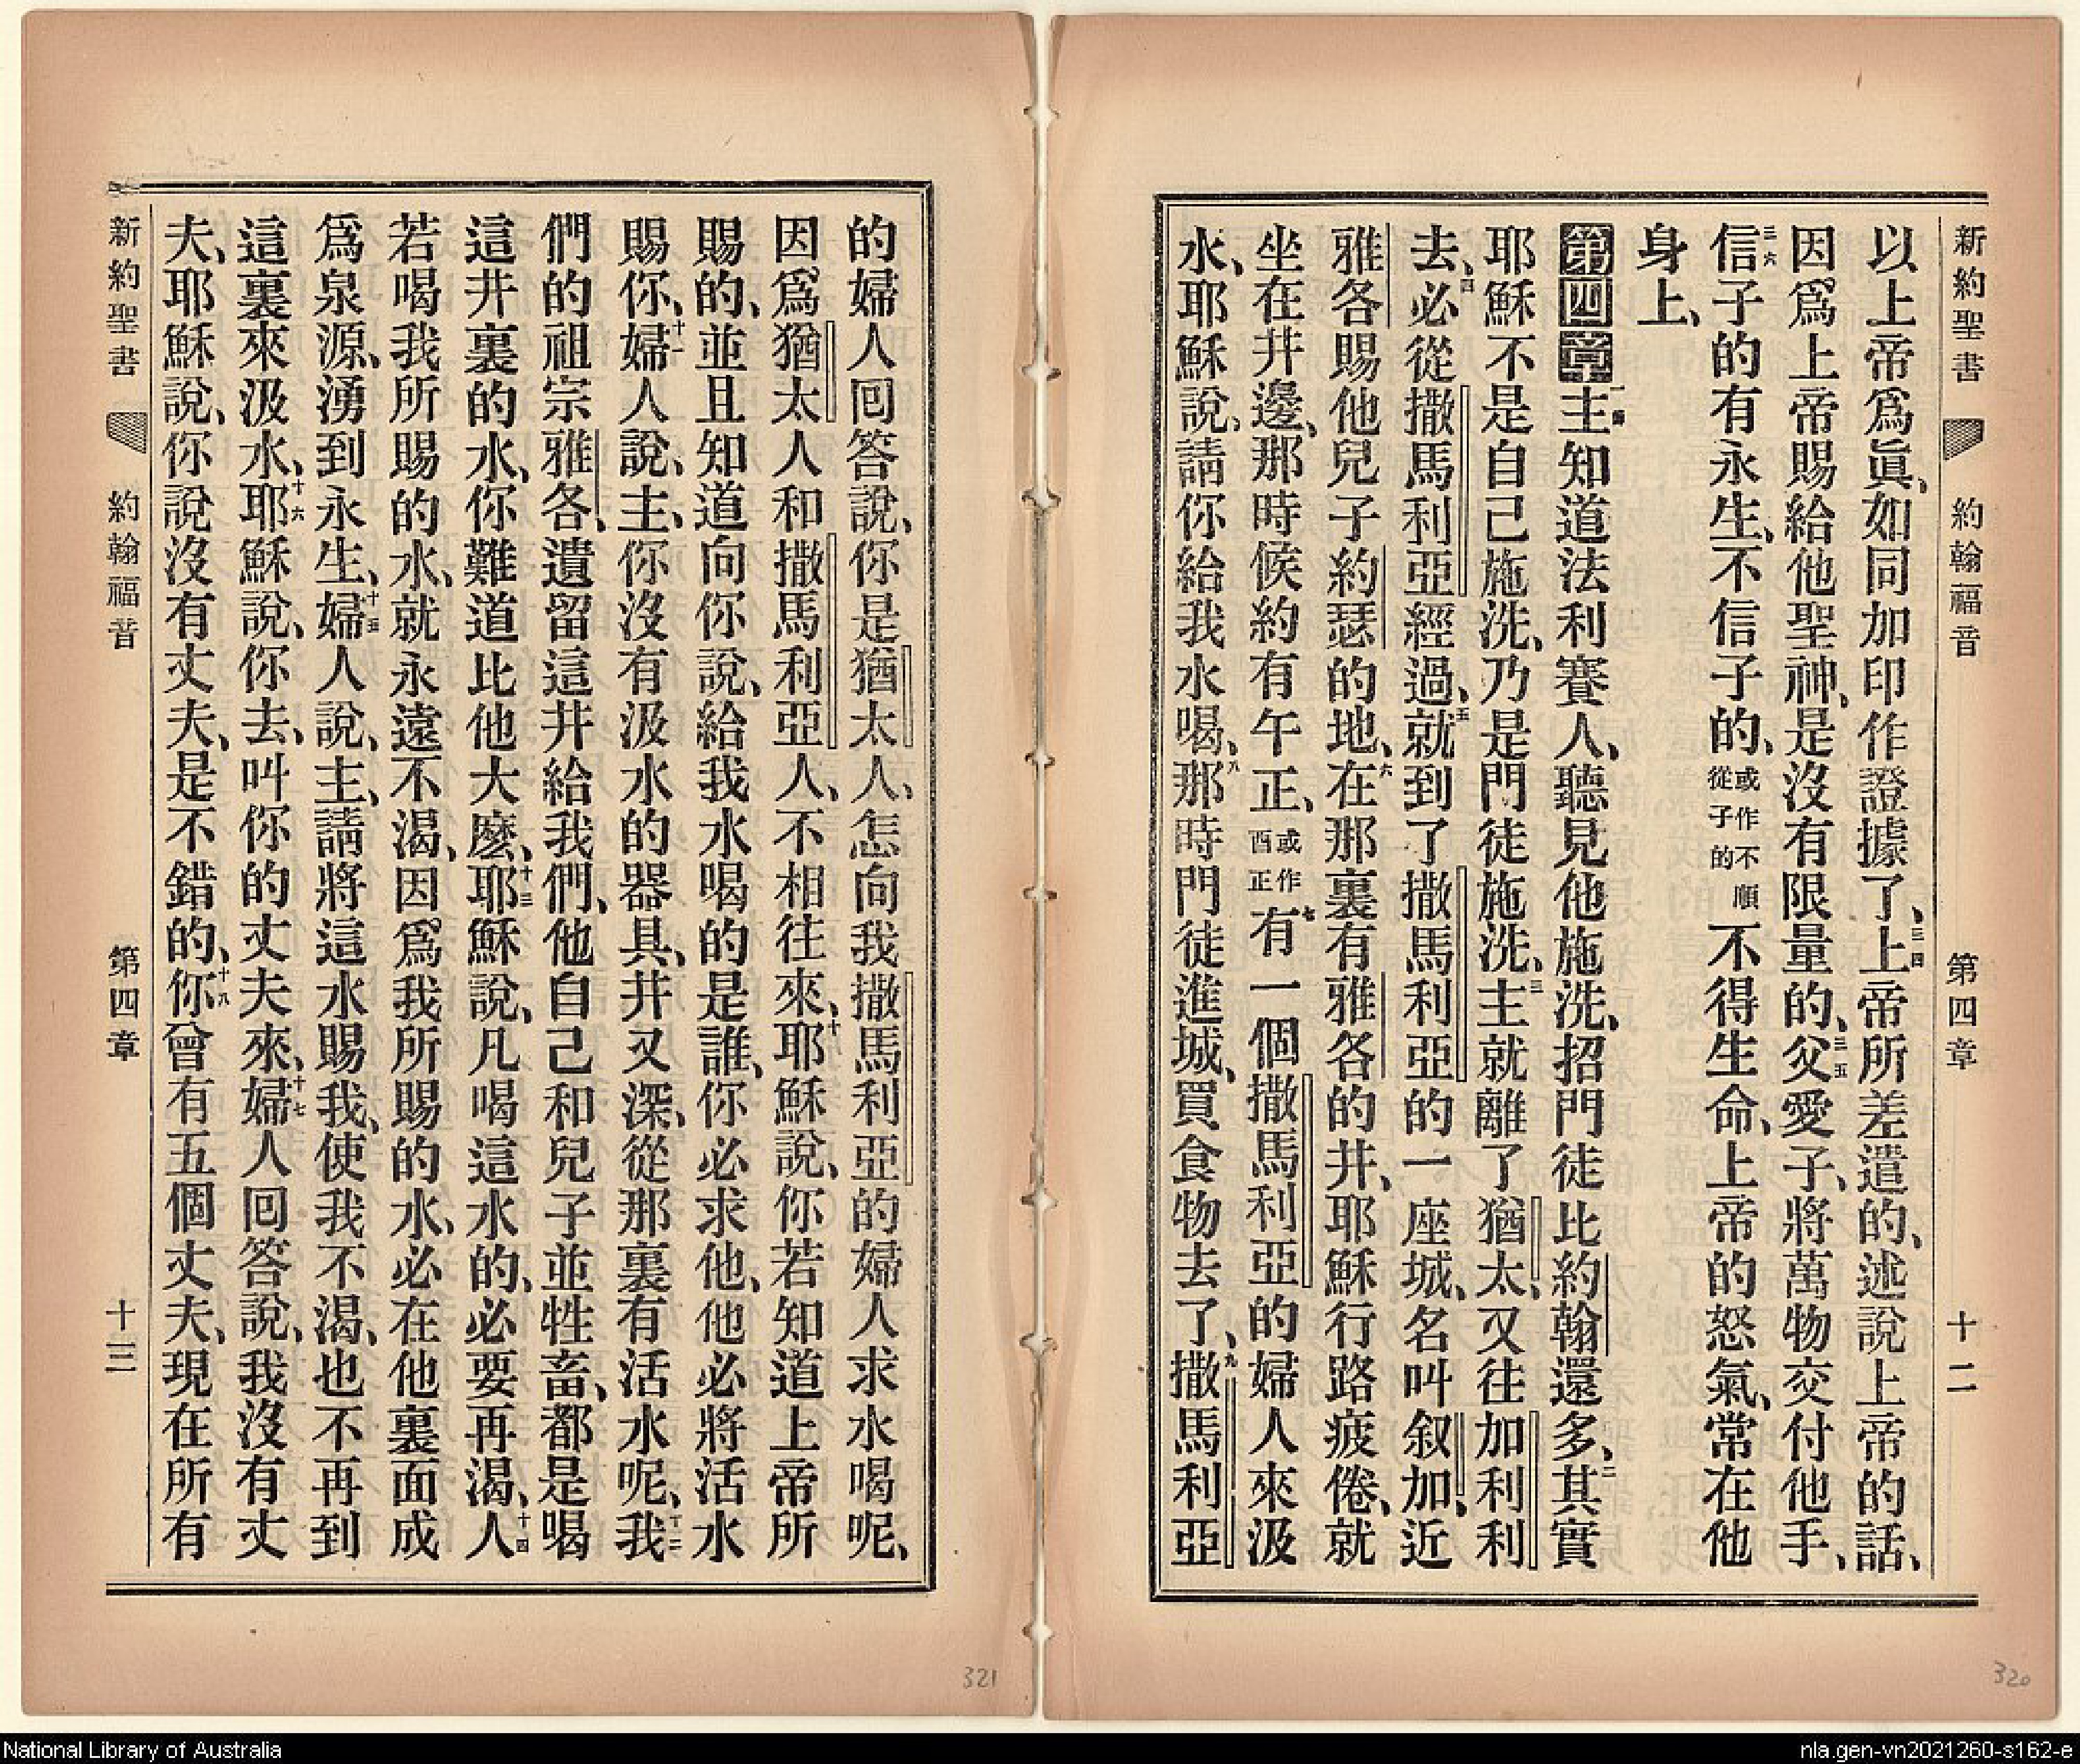 新約聖書 約翰福音 第四章 十二
以上帝爲眞、如同加印作證據了、三四上帝所差遣的、述說上帝的話、
因爲上帝賜給他聖神、是沒有限量的、三五父愛子、將萬物交付他手、
三六信子的有永生、不信子的、或作不順從子的不得生命、上帝的怒氣、常在他
身上、
第四章一二主知道法利賽人、聽見他施洗、招門徒比約翰還多、二其實
耶穌不是自己施洗、乃是門徒施洗、三主就離了猶太、又往加利利
去、四必從撒馬利亞經過、五就到了撒馬利亞的一座城、名叫叙加、近
雅各賜他兒子約瑟的地、六在那裏有雅各的井、耶穌行路疲倦、就
坐在井邊、那時候約有午正、或作酉正七有一個撒馬利亞的婦人來汲
水、耶穌說、請你給我水喝、八那時門徒進城、買食物去了、九撒馬利亞
的婦人回答說、你是猶太人、怎向我撒馬利亞的婦人求水喝呢、
因爲猶太人和撒馬利亞人、不相往來、十耶穌說、你若知道上帝所
賜的、並且知道向你說、給我水喝的是誰、你必求他、他必將活水
賜你、十一婦人說、主、你沒有汲水的器具、井又深、從那裏有活水呢、十二我
們的祖宗雅各、遺留這井給我們、他自己和兒子並牲畜、都是喝
這井裏的水、你難道比他大麽、十三耶穌說、凡喝這水的、必要再渴、十四人
若喝我所賜的水、就永遠不渴、因爲我所賜的水、必在他裏面成
爲泉源、湧到永生、十五婦人說、主、請將這水賜我、使我不渴、也不再到
這裏來汲水、十六耶穌說、你去、叫你的丈夫來、十七婦人回答說、我沒有丈
夫、耶穌說、你說沒有丈夫、是不錯的、十八你曾有五個丈夫、現在所有
新約聖書 約翰福音 第四章 十三
321
320
National Library of Australia
nla.gen-vn2021260-s162-e